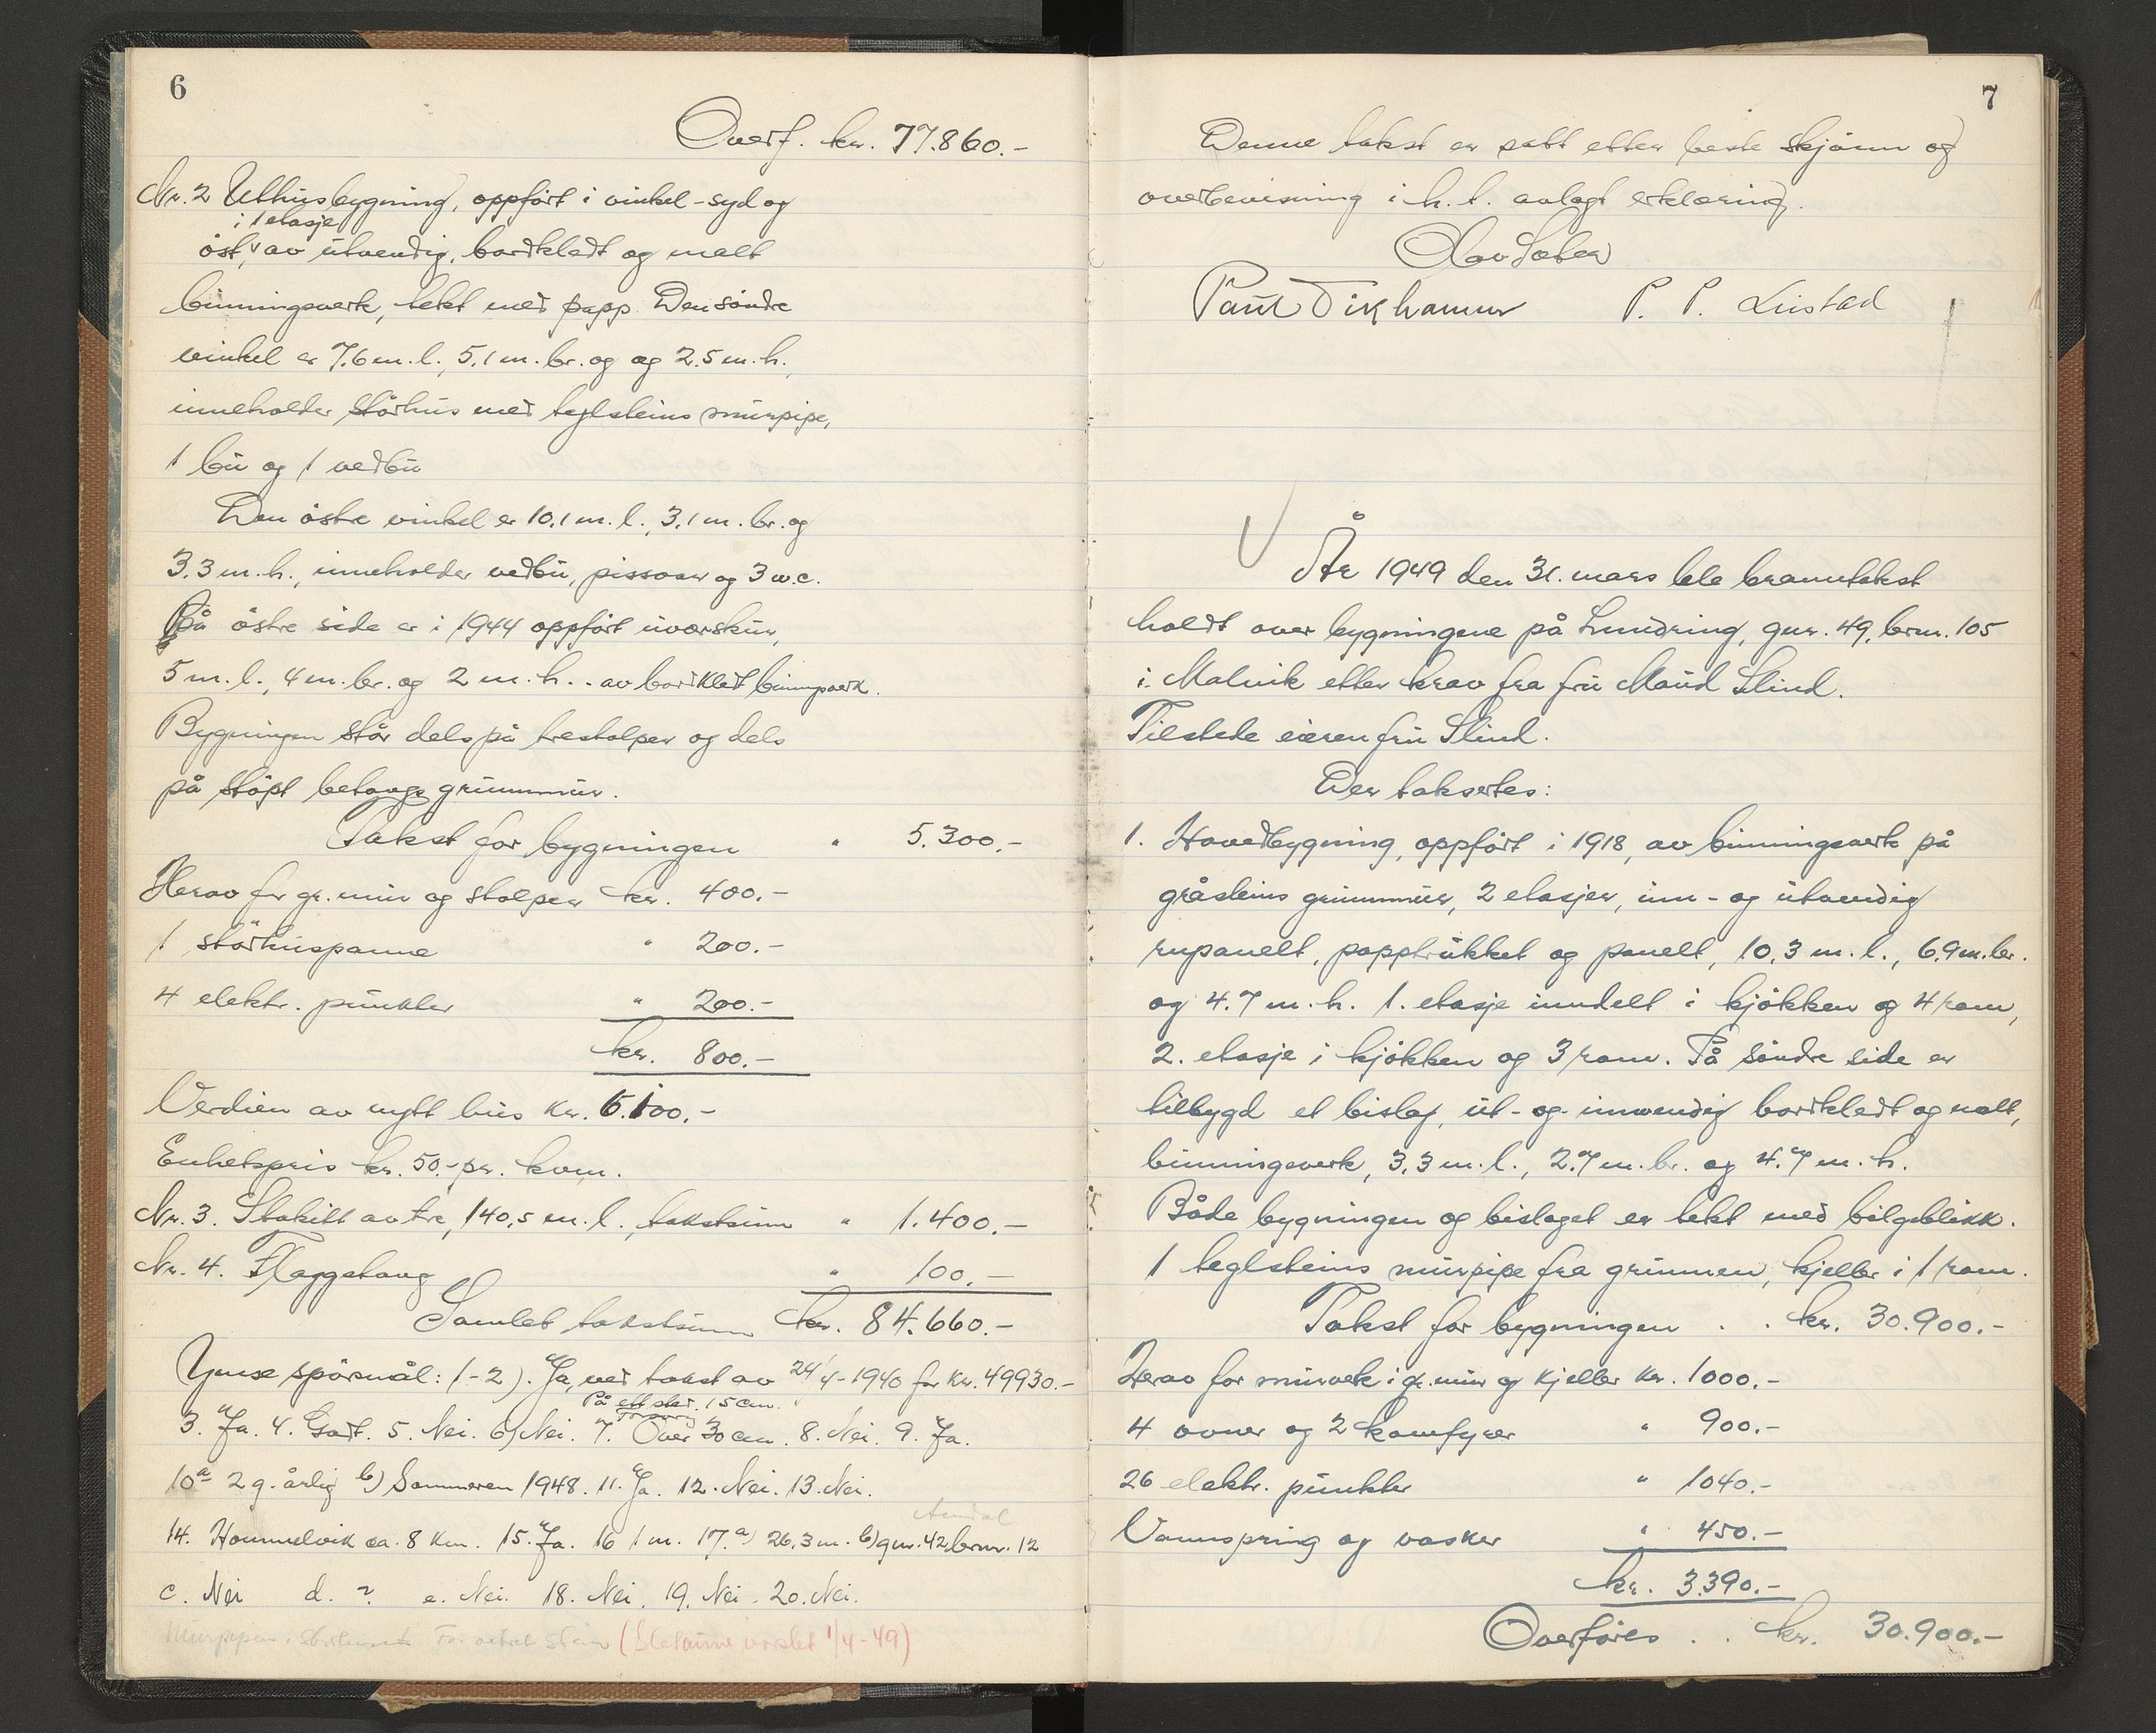 6
Overf. kr. 77.860.-
Nr. 2 Uthusbygning, oppført i vinkel-syd og
i 1 etasje
öst, av utvendig, bordkledt og malt
binningsverk, tekt med papp. Den söndre
vinkel er 7.6 m. l., 5.1 m. br. og og 2.5 m. h.,
inneholder störhus med teglsteins murpipe,
1 bu og 1 vedbu
Den östre vinkel er 10,1 m. l., 3,1 m. br. og
3.3 m. h., inneholder vedbu, pissoar og 3 w.c.
På östre side er i 1944 oppfört uværskur,
5 m. l., 4 m. br. og 2 m. h. . av bordkledt binningsverk.
Bygningen står dels på trestolper og dels
på stöpt betongs grunnmur.
Takst for bygningen " 5.300.-
Herav for gr. mur og stolper kr. 400.-
1 störhuspanne " 200.-
4 elektr. punkter " 200.-
kr. 800.-
Verdien av nytt hus kr. 6.100.-
Enhetspris kr. 50.- pr. kvm.
Nr. 3. Stakitt av tre, 140,5 m. l., takstsum " 1.400.-
Nr. 4. Flaggstang " 100.-
Samlet takstsum kr. 84.660.-
Ymse spörsmål: 1-2). Ja, ved takst av 24/4-1940 for kr. 49930.-
På ett sted. 15 cm.
3. Ja. 4. Godt. 5. Nei. 6) Nei. 7. Over 30 cm. 8. Nei. 9. Ja.
10a 2 g. årlig b) Sommeren 1948. 11. Ja. 12. Nei. 13. Nei.
14. Hommelvik ca. 8 km. 15. Ja. 16 1 m. 17. a) 26,3 m. b) gnr. 42 brnr. 12
c. Nei d. ? e. Nei. 18. Nei. 19. Nei. 20. Nei.
1/4-49)
7
Denne takst er satt etter beste skjönn og
overbevisning i h. t. avlagt erklæring.
Olav Sæter
Paul Dirkhamur P. P. Leistad
År 1949 den 31. mars ble branntakst
holdt over bygningene på Lundring, gnr. 49, brnr. 105
i Malvik etter krav fra fru Maud Slind.
Tilstede eieren fru Slind.
Der taksertes:
1. Hovedbygning, oppfört i 1918, av binningsverk på
gråsteins grunnmur, 2 etasjer, inn- og utvendig
rupanelt, papptrukket og panelt, 10,3 m. l., 6,9 m. br.
og 4.7 m. h. 1. etasje inndelt i kjökken og 4 rom,
2. etasje i kjökken og 3 rom. På söndre side er
tilbygd et bislag, ut- og innvendig bordkledt og malt,
binningsverk, 3,3 m. l., 2.7 m. br. og 4.7 m. h.
Både bygningen og bislaget er tekt med bölgeblikk.
1 teglsteins murpipe fra grunnen, kjeller i 1 rom.
Takst for bygningen . . kr. 30.900.-
Herav for murverk i gr. mur og kjeller kr. 1000.-
4 ovner og 2 komfyrer " 900.-
26 elektr. punkter " 1040.-
Vannspring og vasker " 450.-
kr. 3.390.-
Overföres . . kr. 30.900.-